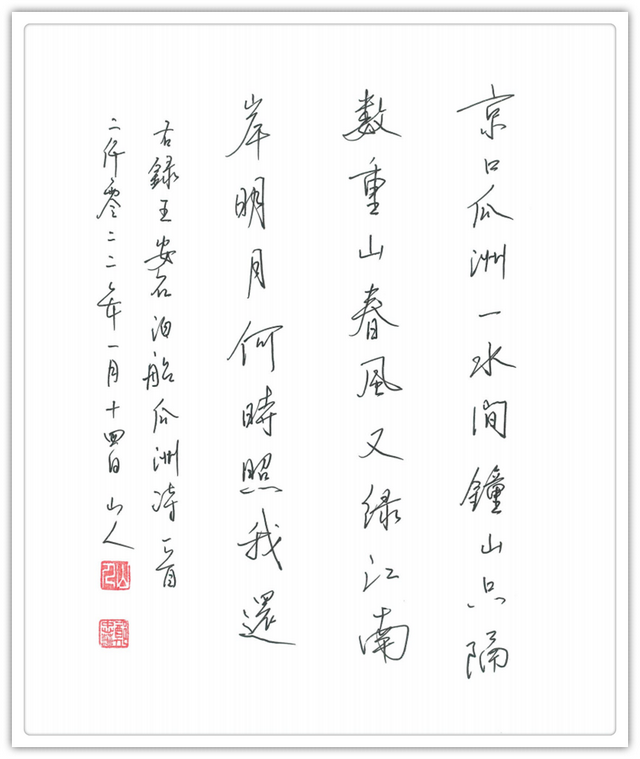 京口瓜洲一水間鐘山只隔
数重山春風又緑江南
岸明月何時照我還
右録王安石泊船瓜洲诗一首
二仟零二二年一月十四日 山人